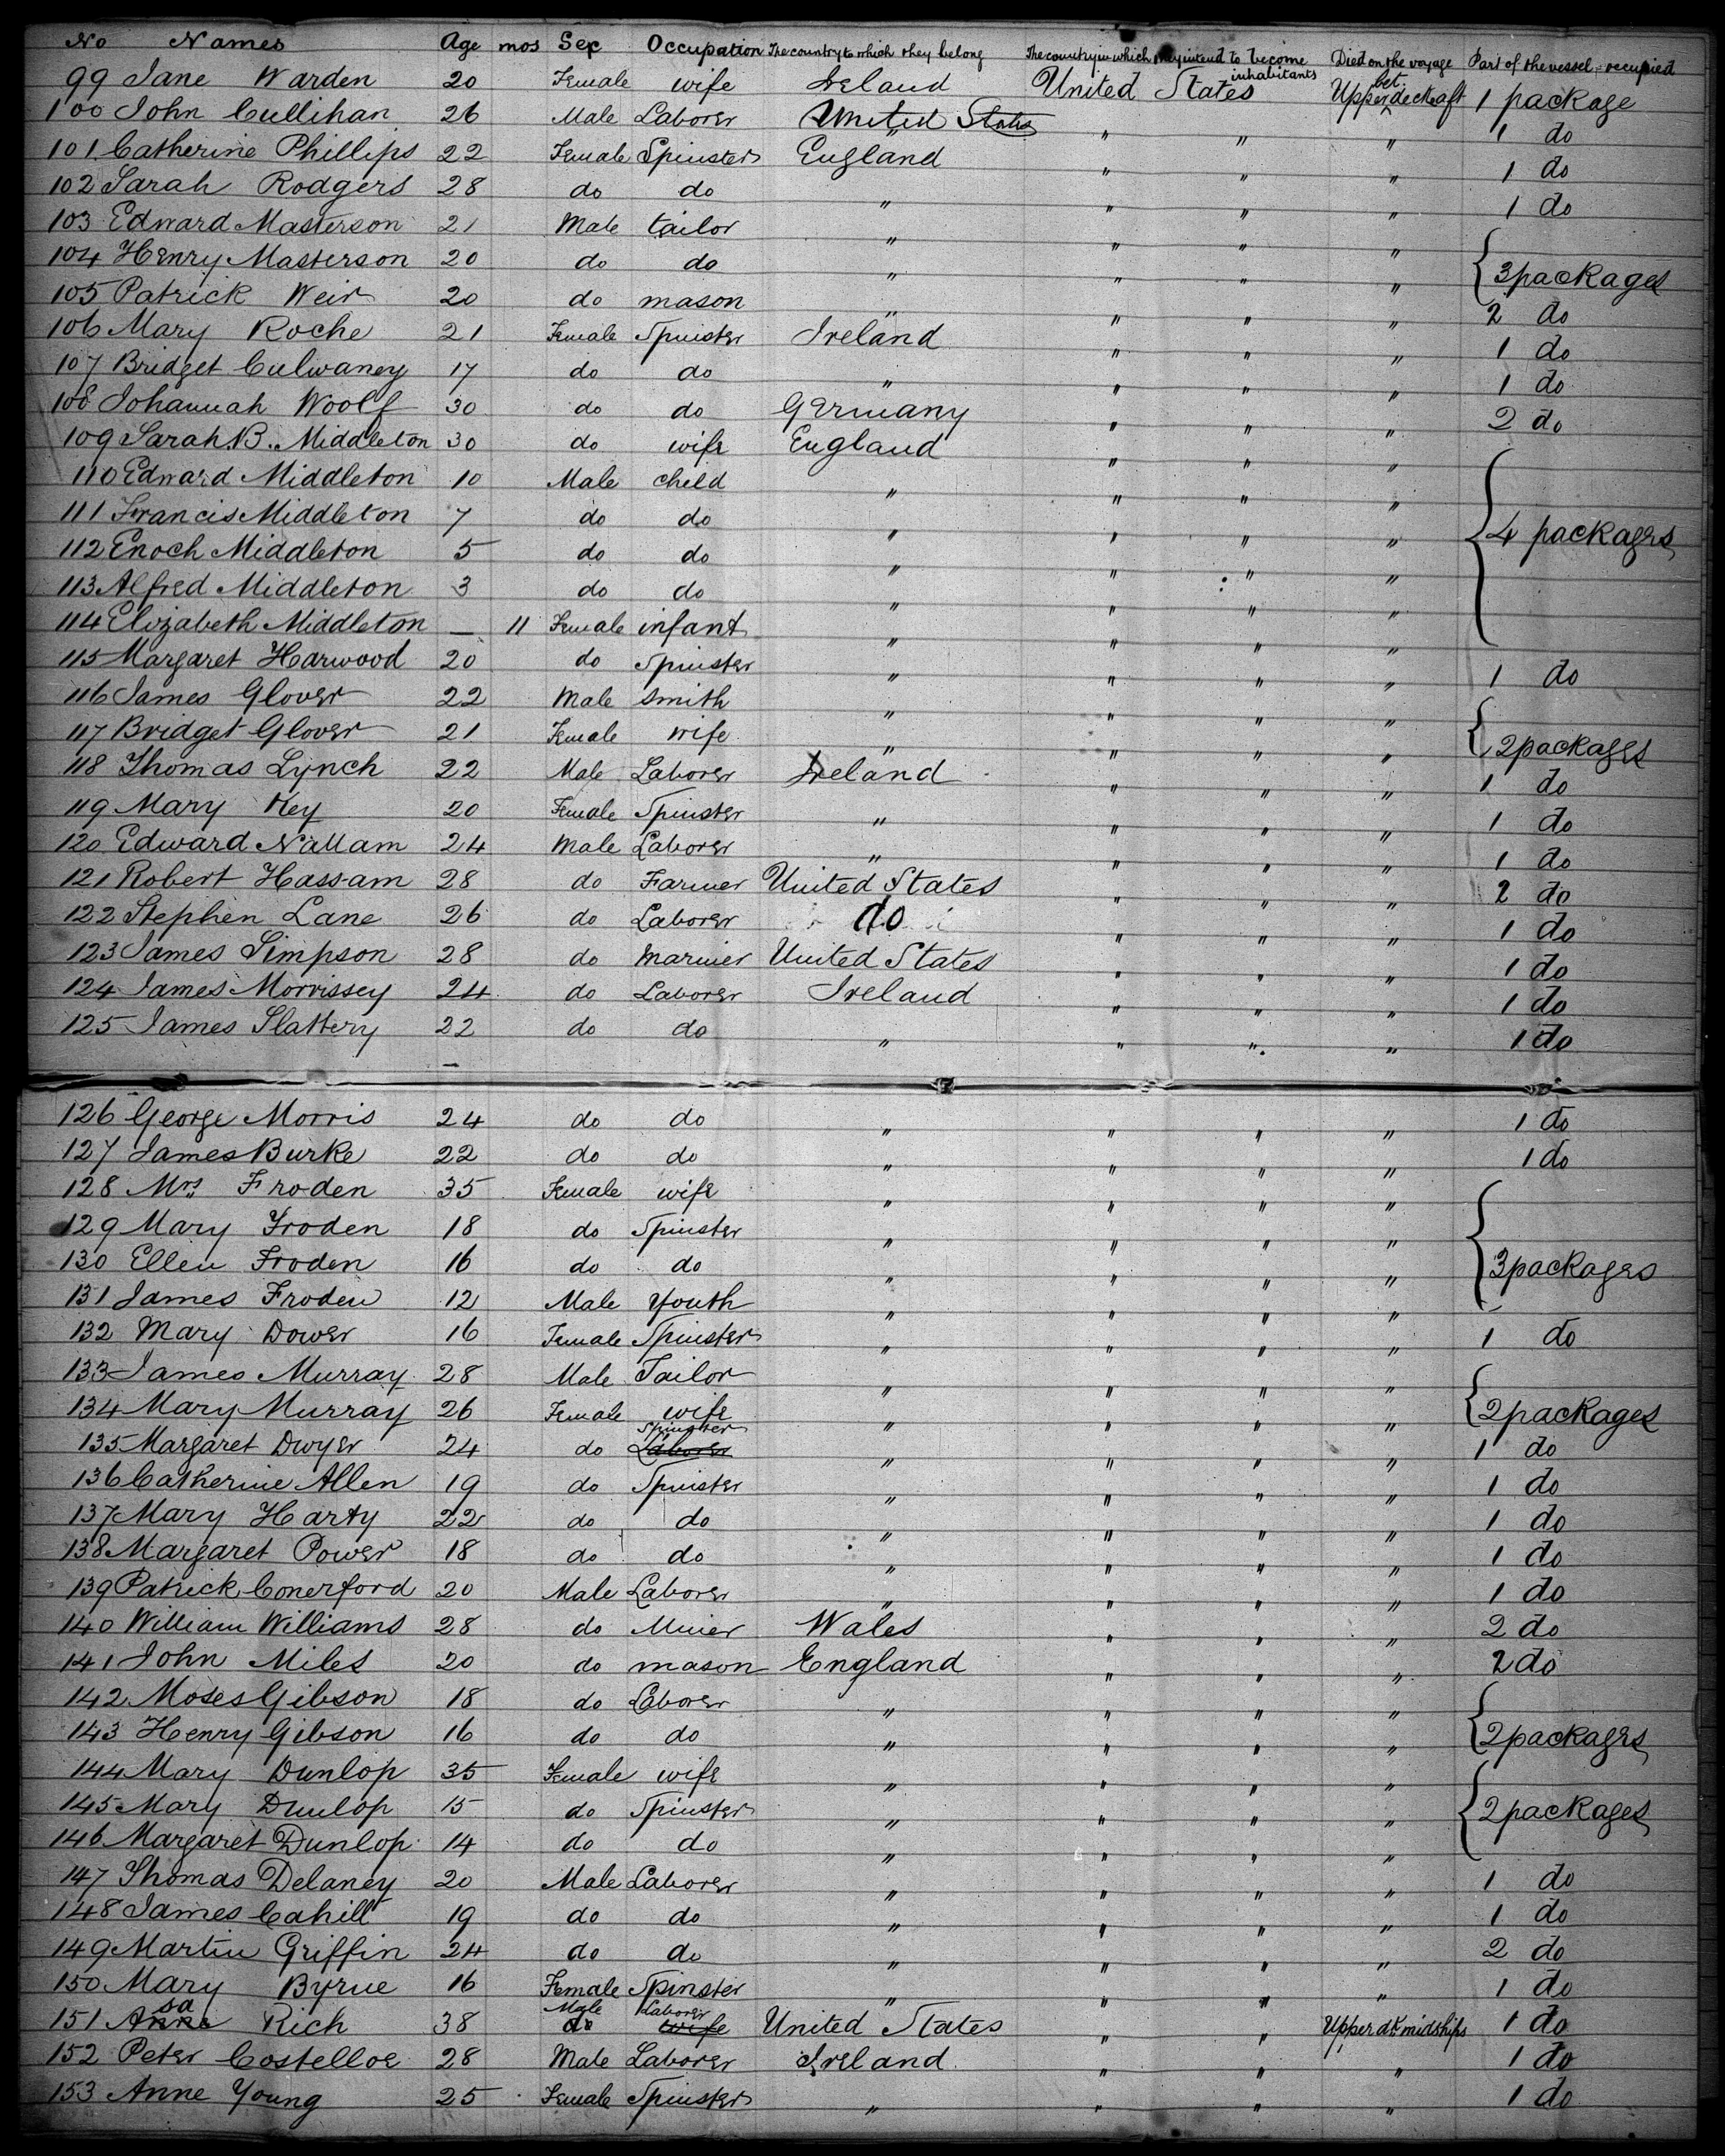 No Names Age mos Sex Occupation The country to which they belong The country in which they intend to become inhabitants Died on the voyage Part of the vessel occupied
99 Jane Warden 20 Female wife Ireland United States Upper bet. deck aft 1 package
100 John Cullihan 26 Male Laborer United States " " " 1 do
101 Catherine Phillips 22 Female Spinster England " " " 1 do
102 Sarah Rodgers 28 do do " " " " 1 do
103 Edward Masterson 21 Male tailor " " " "
104 Henry Masterson 20 do do " " " " 3 packages
105 Patrick Weir 20 do mason " " " " 2 do
106 Mary Roche 21 Female Spinster Ireland " " " 1 do
107 Bridget Culwaney 17 do do " " " " 1 do
108 Johannah Woolf 30 do do Germany " " " 2 do
109 Sarah B. Middleton 30 do wife England " " "
110 Edward Middleton 10 Male child " " " "
111 Francis Middleton 7 do do " " " " 4 packages
112 Enoch Middleton 5 do do " " " "
113 Alfred Middleton 3 do do " " " "
114 Elizabeth Middleton — 11 Female infant " " " "
115 Margaret Harwood 20 do Spinster " " " " 1 do
116 James Glover 22 Male Smith " " " "
117 Bridget Glover 21 Female wife " " " " 2 packages
118 Thomas Lynch 22 Male Laborer Ireland " " " 1 do
119 Mary Key 20 Female Spinster " " " " 1 do
120 Edward Nallam 24 Male Laborer " " " " 1 do
121 Robert Hassam 28 do Farmer United States " " " 2 do
122 Stephen Lane 26 do Laborer do " " " 1 do
123 James Simpson 28 do Mariner United States " " " 1 do
124 James Morrissey 24 do Laborer Ireland " " " 1 do
125 James Slattery 22 do do " " " " 1 do
126 George Morris 24 do do " " " " 1 do
127 James Burke 22 do do " " " " 1 do
128 Mrs Froden 35 Female wife " " " "
129 Mary Froden 18 do Spinster " " " "
130 Ellen Froden 16 do do " " " " 3 packages
131 James Froden 12 Male Youth " " " "
132 Mary Dower 16 Female Spinster " " " " 1 do
133 James Murray 28 Male Tailor " " " "
134 Mary Murray 26 Female wife " " " " 2 packages
135 Margaret Dwyer 24 do Laborer Spinster " " " " 1 do
136 Catherine Allen 19 do Spinster " " " " 1 do
137 Mary Harty 22 do do " " " " 1 do
138 Margaret Power 18 do do " " " " 1 do
139 Patrick Conerford 20 Male Laborer " " " " 1 do
140 William Williams 28 do Miner Wales " " " 2 do
141 John Miles 20 do mason England " " " 2 do
142 Moses Gibson 18 do Laborer " " " "
143 Henry Gibson 16 do do " " " " 2 packages
144 Mary Dunlop 35 Female wife " " " "
145 Mary Dunlop 15 do Spinster " " " " 2 packages
146 Margaret Dunlop 14 do do " " " "
147 Thomas Delaney 20 Male Laborer " " " " 1 do
148 James Cahill 19 do do " " " " 1 do
149 Martin Griffin 24 do do " " " " 2 do
150 Mary Byrne 16 Female Spinster " " " " 1 do
151 Asa Rich 38 Male do Laborer wife United States " " Upper dk midships 1 do
152 Peter Costelloe 28 Male Laborer Ireland " " " 1 do
153 Anne Young 25 Female Spinster " " " " 1 do